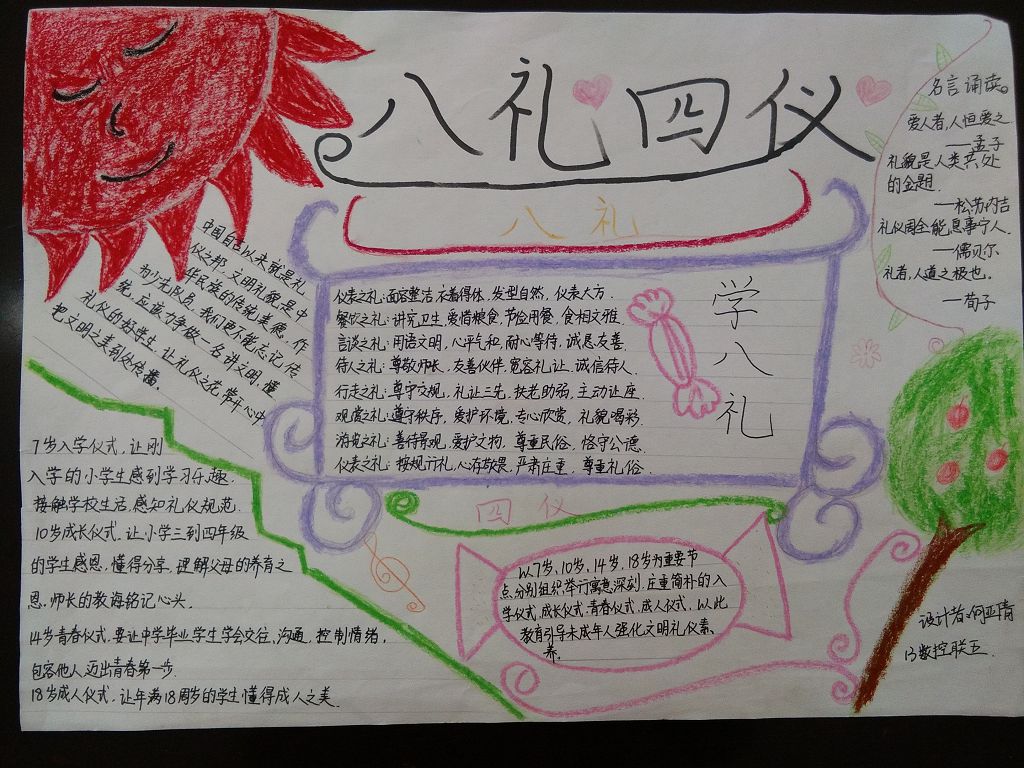 八礼四仪
八礼
中国自古以来就是礼
仪之邦，文明礼貌是中
华民族的传统美德。作
为少先队员，我们更不能忘记传
统，应该力争做一名讲文明，懂
礼仪的好学生，让礼仪之花常开心中
把文明之美到处传播。
仪表之礼：面容整洁，衣着得体，发型自然，仪表大方．
餐饮之礼：讲究卫生，爱惜粮食，节俭用餐，食相文雅．
言谈之礼：用语文明，心平气和，耐心等待，诚恳友善．
待人之礼：尊敬师长，友善伙伴，宽容礼让，诚信待人．
行走之礼：尊守交规，礼让三先，扶老助弱，主动让座．
观赏之礼：遵守秩序，爱护环境，专心欣赏，礼貌喝彩．
游览之礼：善待景观，爱护文物，尊重民俗，恪守公德．
仪表之礼：按规行礼，心存敬畏，严肃庄重，尊重礼俗．
学八礼
名言诵读。
爱人者，人恒爱之．
——孟子
礼貌是人类共处
的金题．
——松苏内吉
礼仪周全能息事宁人．
——儒贝尔
礼者，人道之极也。
——荀子
7岁入学仪式，让刚
入学的小学生感到学习乐趣．
接触学校生活，感知礼仪规范．
10岁成长仪式，让小学三到四年级
的学生感恩，懂得分享，理解父母的养育之
恩，师长的教诲铭记心头．
14岁青春仪式，要让中学毕业学生学会交往，沟通，控制情绪，
包容他人迈出青春第一步．
18岁成人仪式，让年满18周岁的学生懂得成人之美．
四仪
以7岁，10岁，14岁，18岁为重要节
点，分别组织举行寓意深刻，庄重简朴的入
学仪式，成长仪式，青春仪式，成人仪式，以此
教育引导未成年人强化文明礼仪素
养。
设计者：何亚倩
13数控联五．